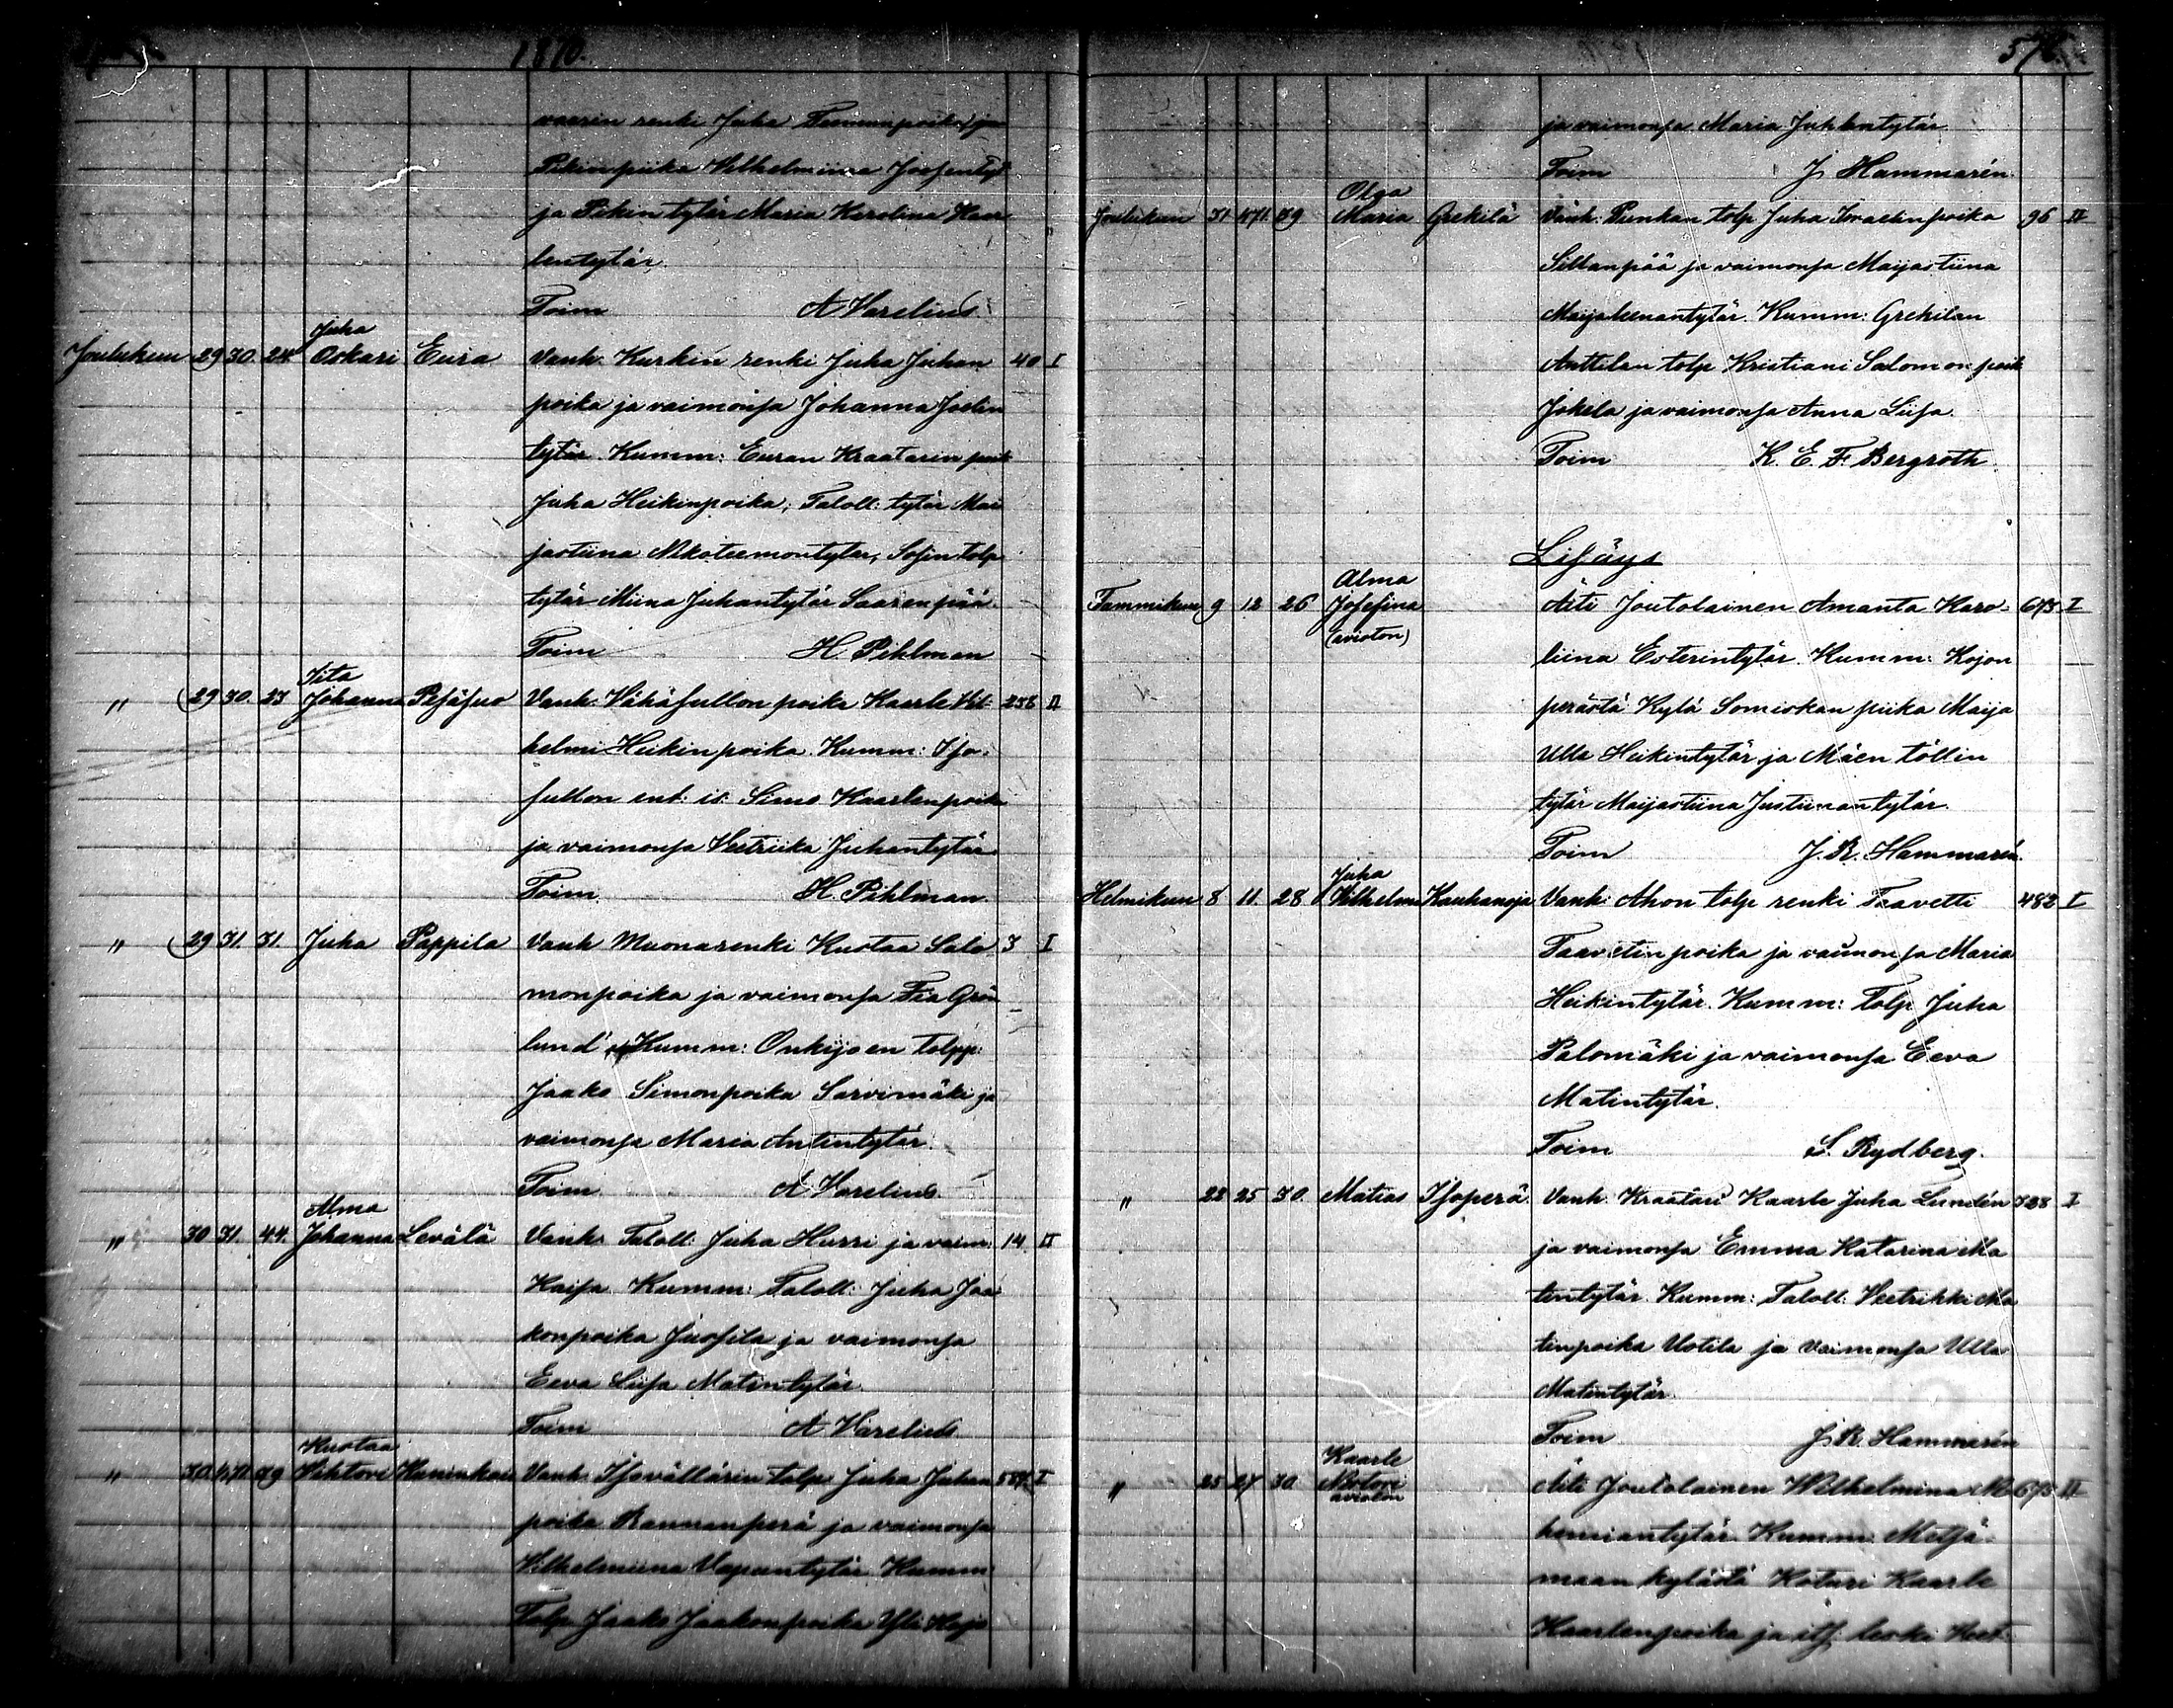 1870.
vaarin renki Juha Tuomanpoika ja
Pikin piika Vilhelmiina Josefintyt
ja Pikin tytär Maria Karolina Kaar
lentytär.
Toim A Varelius
Juha
Joulukuu 29 30. 24 Oskari Eura Vanh. Kurkin renki Juha Juhan 40 I
poika ja vaimonsa Johanna Joelin
tytär. Kumm: Euran Kraatarin poik
Juha Heikinpoika, Taloll. tytär Mai
jastiina Nikoteemontytär, Sofin tolp
tytär Miina Juhantytär Saarenpää.
Toim H. Pihlman
Iita
" 29 30. 23 Johanna Pesäsuo Vanh. Vähäsullon poika Kaarle Vil 256 II
helmi Heikinpoika. Kumm: Iso
sullon ent. is. Simo Kaarlenpoika
ja vaimonsa Veetriika Juhantytär
Toim. H. Pihlman
" 29 31. 31. Juha Pappila Vanh Muonarenki Kustaa Salo 3 I
monpoika ja vaimonsa Fia Grön
lund. Kumm: Onkijoen tolpp.
Jaako Simonpoika Sarvimäki ja
vaimonsa Maria Antintytär.
Toim. A Varelius.
Alma
" 30 31. 44. Johanna Levälä Vanh. Taloll. Juha Hurri ja vaim. 14 II
Kaisa Kumm: Taloll: Juha Jaa
konpoika Juosila ja vaimonsa
Eeva Liisa Matintytär.
Toim A Varelius
Kustaa
" 30. 1/71. 29 Vihtori Haninkai Vanh. Isovällärin tolp. Juha Juhan I
poika Rannanperä ja vaimonsa
Vilhelmiina Vapuntytär Kumm
Tolp. Jaako Jaakonpoika Yli Kojo
576.
ja vaimonsa Maria Juhlentytär
Toim J Hammarén.
Olga
Joulukuu 31 1/71. 29 Maria Grekilä Vanh: Punkan tolp Juha Israelinpoika 96 II
Sillanpää ja vaimonsa Maijastiina
Maijaleenantytär. Kumm: Grekilan
Anttilan tolp Kristiani Salomonpoik
Jokela ja vaimonsa Anna Liisa.
Toim K. E. F. Bergroth.
Lisäys
Alma
Tammikuu 9 12 26 Josefina Äiti Joutolainen Amanta Karo- 673 I
(avioton)
liina Esterintytär. Kumm: Kojon
perästä Kylä Somiskan piika Maija
Ulla Heikintytär ja Mäen töllin
tytär Maijastiina Justiinantytär.
Toim J. R. Hammarén.
Juha
Helmikuu 8 11 28 Vilhelmi Kauhanoja Vanh: Ahon tolp renki Taavetti 482 I
Taavetinpoika ja vaimonsa Maria
Heikintytär. Kumm: Tolp Juha
Palomäki ja vaimonsa Eeva
Matintytär.
Toim S. Rydberg.
" 23 25 30. Matias Isoperä. Vanh. Kraatari Kaarle Juha Lundén 328 I
ja vaimonsa Emma Katarina Ma
tintytär. Kumm: Taloll. Veetrikki Ma
tinpoika Uotila ja vaimonsa Ulla
Matintytär.
Toim J. R. Hammarén
Kaarle
" 25 27 30. Nestori Äiti Joutolainen Wilhelmina 673 II
avioton
Kumm: Metsä
maan kylästä Koturi Kaarle
Kaarlenpoika ja its. leski Veet